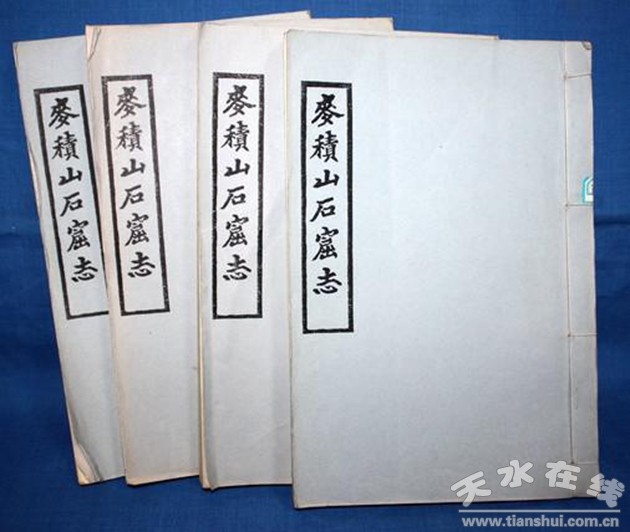 麥積山石窟志
麥積山石窟志
麥積山石窟志
麥積山石窟志
天水在线
www.tianshui.com.cn